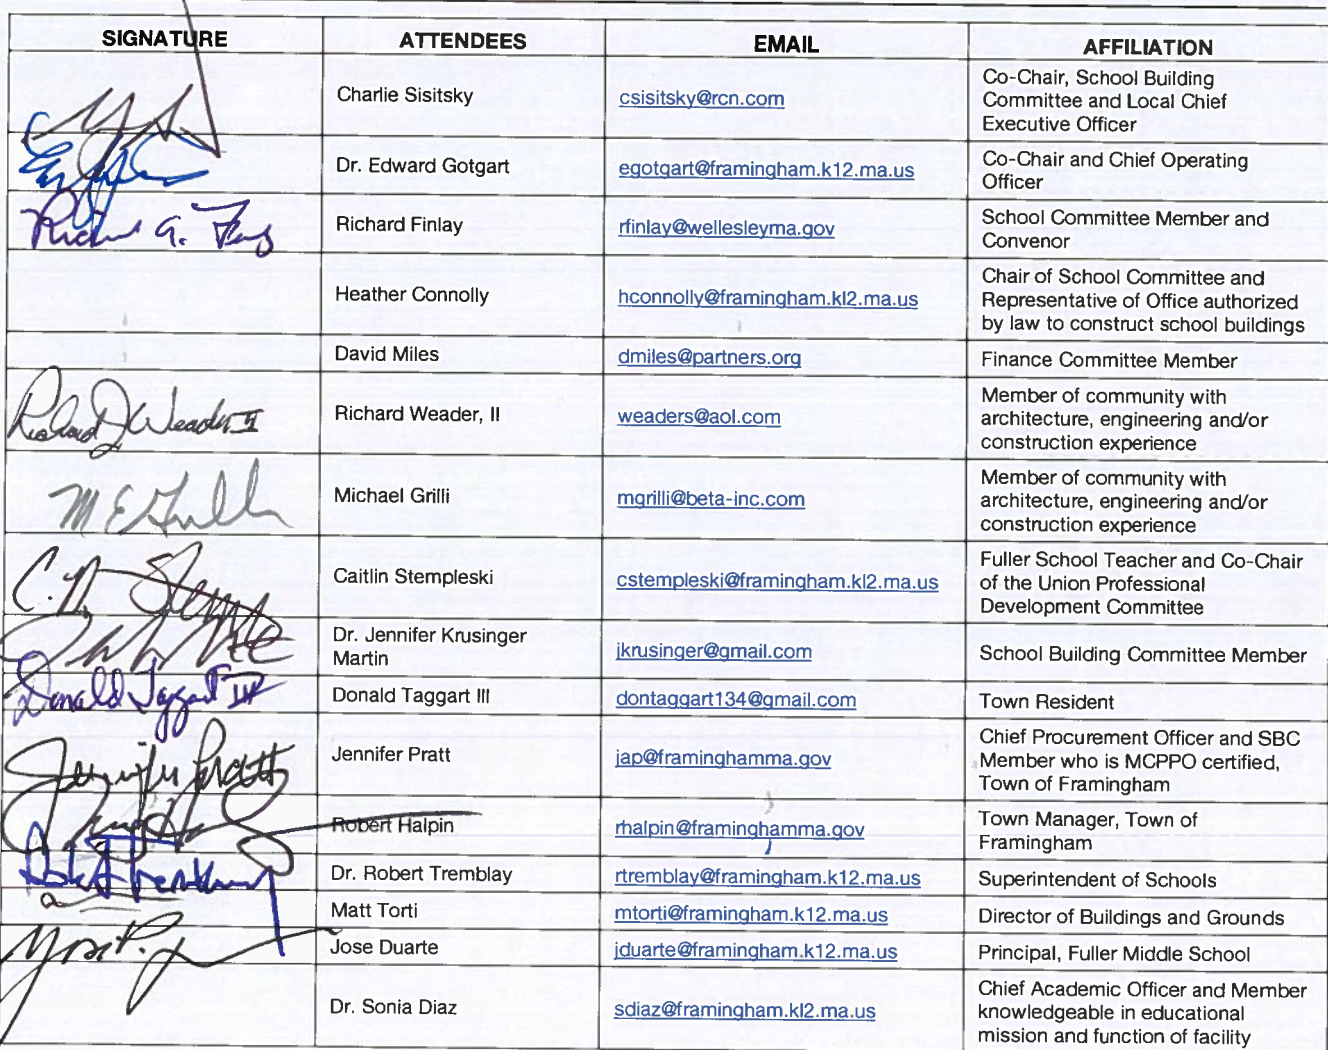 SIGNATURE ATTENDEES EMAIL AFFILIATION
Charlie Sisitsky csisitsky@rcn.com Co-Chair, School Building
Committee and Local Chief
Executive Officer
Dr. Edward Gotgart egotgart@framingham.k12.ma.us Co-Chair and Chief Operating
Officer
Richard Finlay rfinlay@wellesleyma.gov School Committee Member and
Convenor
Heather Connolly hconnolly@framingham.kl2.ma.us Chair of School Committee and
Representative of Office authorized
by law to construct school buildings
David Miles dmiles@partners.org Finance Committee Member
Richard J Weader II Richard Weader, II weaders@aol.com Member of community with
architecture, engineering and/or
construction experience
M E Grilli Michael Grilli mgrilli@beta-inc.com Member of community with
architecture, engineering and/or
construction experience
Caitlin Stempleski cstempleski@framingham.kl2.ma.us Fuller School Teacher and Co-Chair
of the Union Professional
Development Committee
Dr. Jennifer Krusinger
Martin jkrusinger@gmail.com School Building Committee Member
Donald Taggart III Donald Taggart III dontaggart134@gmail.com Town Resident
Jennifer Pratt Jennifer Pratt jap@framinghamma.gov Chief Procurement Officer and SBC
Member who is MCPPO certified,
Town of Framingham
Robert Halpin rhalpin@framinghamma.gov Town Manager, Town of
Framingham
Dr. Robert Tremblay rtremblay@framingham.k12.ma.us Superintendent of Schools
Matt Torti mtorti@framingham.k12.ma.us Director of Buildings and Grounds
Jose Duarte jduarte@framingham.k12.ma.us Principal, Fuller Middle School
Dr. Sonia Diaz sdiaz@framingham.kl2.ma.us Chief Academic Officer and Member
knowledgeable in educational
mission and function of facility